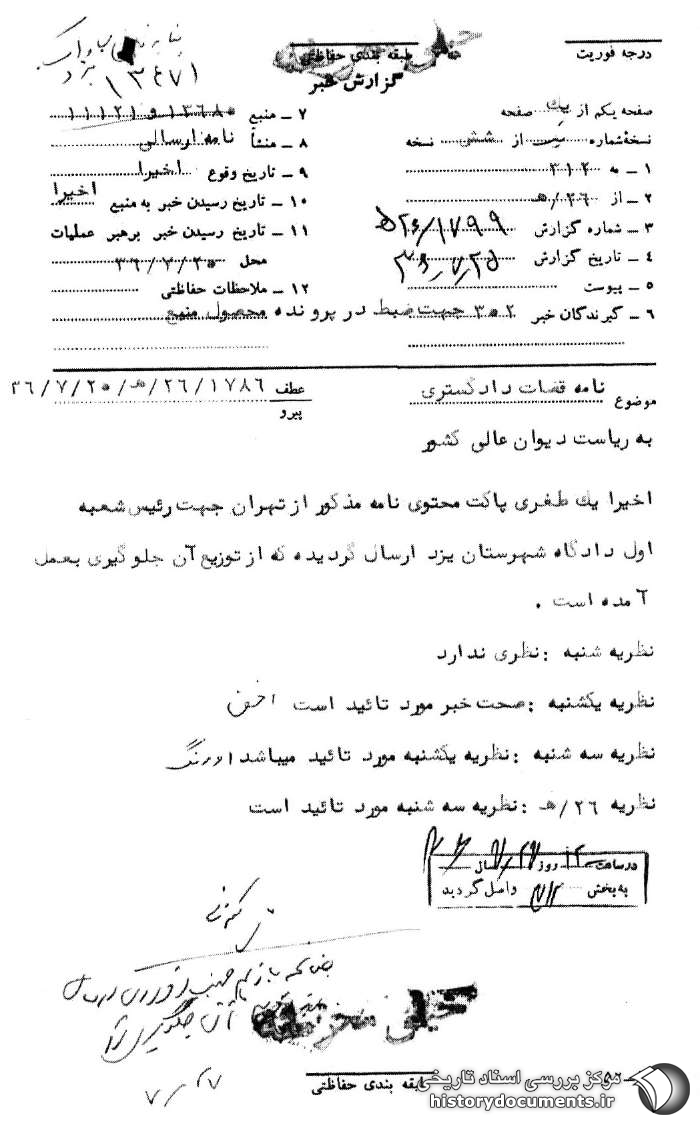 درجه فوریت
طبقه بندی حفاظتی
گزارش خبر
صفحه یکم از یك صفحه
نسخهٔ شماره از شش نسخه
۱ ـ به ۳۱۲
۲ ـ از ۲۶/هـ
۳ ـ شماره گزارش ۱۷۹۹/۲۶ه
۴ ـ تاریخ گزارش ۳۶٫۷٫۲۵
۵ ـ پیوست
۶ ـ گیرندگان خبر
۷ ـ منبع ۱۳۶۸۰ و ۱۱۱۲۱
۸ ـ منشأ نامه ارسالی
۹ ـ تاریخ وقوع اخیرا
۱۰ ـ تاریخ رسیدن خبر به منبع اخیرا
۱۱ ـ تاریخ رسیدن خبر برهبر عملیات
محل ۳۶/۷/۲۰
۱۲ ـ ملاحظات حفاظتی
جهت ضبط در پرونده محصول منبع
موضوع نامه قضات دادگستری
عطف ۱۷۸۶/۲۶/هـ/۳۶/۷/۲۰
پیرو
به ریاست دیوان عالی کشور
اخیرا یك طغری پاکت محتوی نامه مذکور از تهران جهت رئیس شعبه
اول دادگاه شهرستان یزد ارسال گردیده که از توزیع آن جلوگیری بعمل
آمده است .
نظریه شنبه : نظری ندارد
نظریه یکشنبه : صحت خبر مورد تائید است
نظریه سه شنبه : نظریه یکشنبه مورد تائید میباشد اورنگ
نظریه ۲۶/هـ : نظریه سه شنبه مورد تائید است
در ساعت روز سال
به بخش ۳۱۲ واصل گردید
۷/۲۷
طبقه بندی حفاظتی
مرکز بررسی اسناد تاریخی
historydocuments.ir